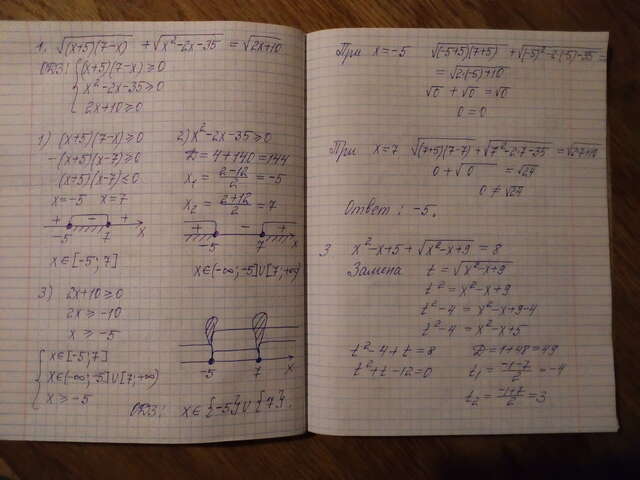 1. √(x+5)(7-x) + √x²-2x-35 = √2x+10
ОДЗ: { (x+5)(7-x) ≥ 0
x²-2x-35 ≥ 0
2x+10 ≥ 0
1) (x+5)(7-x) ≥ 0
-(x+5)(x-7) ≥ 0
(x+5)(x-7) ≤ 0
x=-5 x=7
+ - +
-5 7 x
x∈[-5;7]
2) x²-2x-35 ≥ 0
D = 4+140 = 144
x₁ = (2-12)/2 = -5
x₂ = (2+12)/2 = 7
+ - +
-5 7 x
x∈(-∞;-5]∪[7;+∞)
3) 2x+10 ≥ 0
2x ≥ -10
x ≥ -5
{ x∈[-5;7]
x∈(-∞;-5]∪[7;+∞)
x ≥ -5
-5 7 x
ОДЗ: x∈{-5}∪{7}.
При x=-5 √(-5+5)(7+5) + √(-5)²-2·(-5)-35 =
= √2·(-5)+10
√0 + √0 = √0
0 = 0
При x=7 √(7+5)(7-7) + √7²-2·7-35 = √2·7+10
0 + √0 = √24
0 ≠ √24
Ответ: -5.
3 x²-x+5 + √x²-x+9 = 8
Замена t = √x²-x+9
t² = x²-x+9
t²-4 = x²-x+9-4
t²-4 = x²-x+5
t²-4+t = 8
t²+t-12 = 0
D = 1+48 = 49
t₁ = (-1-7)/2 = -4
t₂ = (-1+7)/2 = 3